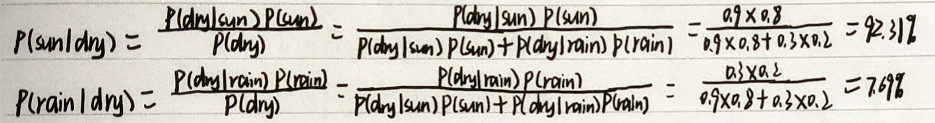 P(sun|dry) = P(dry|sun) P(sun) / P(dry) = P(dry|sun) P(sun) / P(dry|sun) P(sun) + P(dry|rain) P(rain) = 0.9 × 0.8 / 0.9 × 0.8 + 0.3 × 0.2 = 92.31%
P(rain|dry) = P(dry|rain) P(rain) / P(dry) = P(dry|rain) P(rain) / P(dry|sun) P(sun) + P(dry|rain) P(rain) = 0.3 × 0.2 / 0.9 × 0.8 + 0.3 × 0.2 = 7.69%